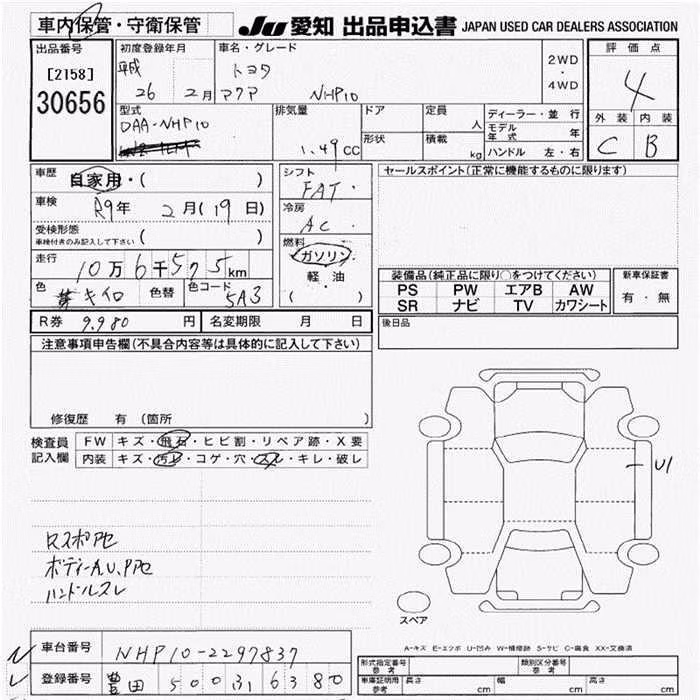 車内保管・守衛保管
JU 愛知 出品申込書 JAPAN USED CAR DEALERS ASSOCIATION
出品番号 初度登録年月 車名・グレード 2WD・4WD 評価点
[2158] 平成 トヨタ 4
30656 26 2月 アクア NHP10
型式 排気量 ドア 定員 人 ディーラー・並行 外装 内装
DAA-NHP10 1.49CC 形状 積載 kg モデル年式 年 C B
ハンドル 左・右
車歴 自家用・( ) シフト FAT・ セールスポイント(正常に機能するものに限ります)
車検 R9年 2月(19日) 冷房 AC・
受検形態 ( )
車検付きのみ記入して下さい
燃料 ガソリン 軽・油 ( )
走行 10万6千575km
色 キイロ 色替 色コード 5A3
装備品(純正品に限り○をつけてください) 新車保証書
PS PW エアB AW 有・無
SR ナビ TV カワシート
R券 9.980円 名変期限 月 日 後日品
注意事項申告欄(不具合内容等は具体的に記入して下さい)
修復歴 有 (箇所
検査員 FW キズ・飛石・ヒビ割・リペア跡・X要
記入欄 内装 キズ・汚レ・コゲ・穴・スレ・キレ・破レ
U1
ロスポアセ
ボディーA.U.Pアセ
ハンドルスレ
スペア
A-キズ E-エクボ U-凹み W-補修跡 S-サビ C-腐食 XX-交換済
車台番号 NHP10-2297837
レ 登録番号 豊田 500 ラ 6380
形式指定番号 参考 類別区分番号 参考
車庫証明用 参考 長さ cm 幅 cm 高さ cm